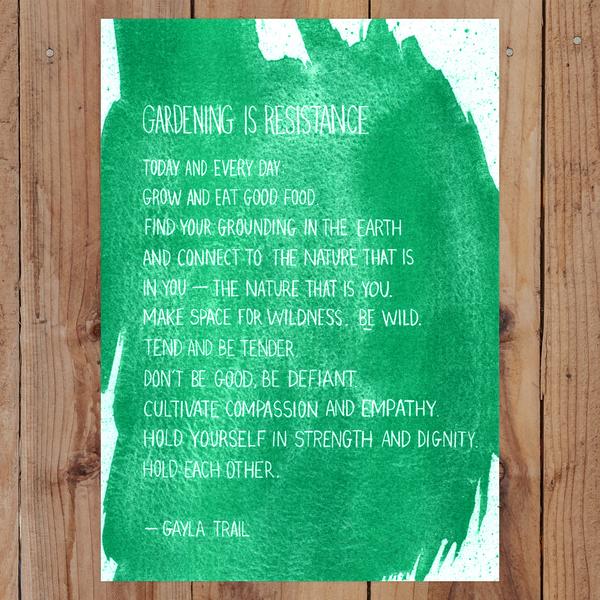 GARDENING IS RESISTANCE
TODAY AND EVERY DAY:
GROW AND EAT GOOD FOOD.
FIND YOUR GROUNDING IN THE EARTH
AND CONNECT TO THE NATURE THAT IS
IN YOU — THE NATURE THAT IS YOU.
MAKE SPACE FOR WILDNESS. BE WILD.
TEND AND BE TENDER.
DON'T BE GOOD, BE DEFIANT.
CULTIVATE COMPASSION AND EMPATHY.
HOLD YOURSELF IN STRENGTH AND DIGNITY.
HOLD EACH OTHER.
— GAYLA TRAIL